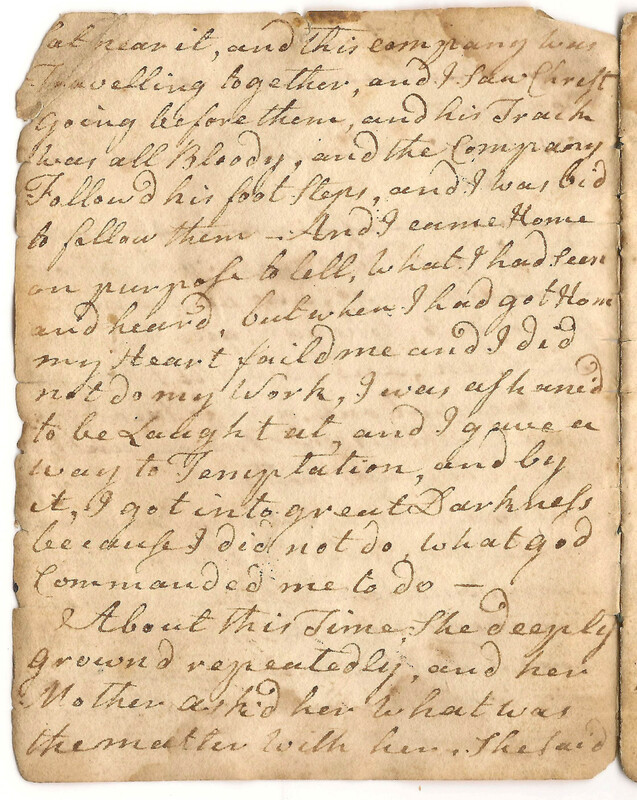 hear it, and this company was
Travelling together, and I saw Christ
going before them, and his Track
was all Bloody, and the Company
Follow'd his foot steps, and I was bid
to follow them — And I came Home
on purpose to tell, what I had seen
and heard, but when I had got Hom
my Heart fail'd me and I did
not do my Work, I was asham'd
to be Laught at, and I gave a
way to Temptation, and by
it, I got into great Darkness
because I did not do, what god
Commanded me to do —
About this Time, She deeply
grown'd repeatedly, and her
Mother ask'd her what was
the matter with her. She said